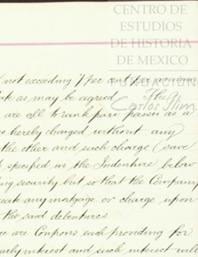 CENTRO DE
ESTUDIOS
DE HISTORIA
DE MEXICO
FUNDACIÓN
Carlos Slim
not exceeding 7 per
as may be agreed
are all to rank pari passu as a
hereby charged without any
the other and such charge (save
specified in the Indenture below
security but so that the Company
any mortgage or charge upon
the said debentures
are Coupons each providing for
interest and such interest will